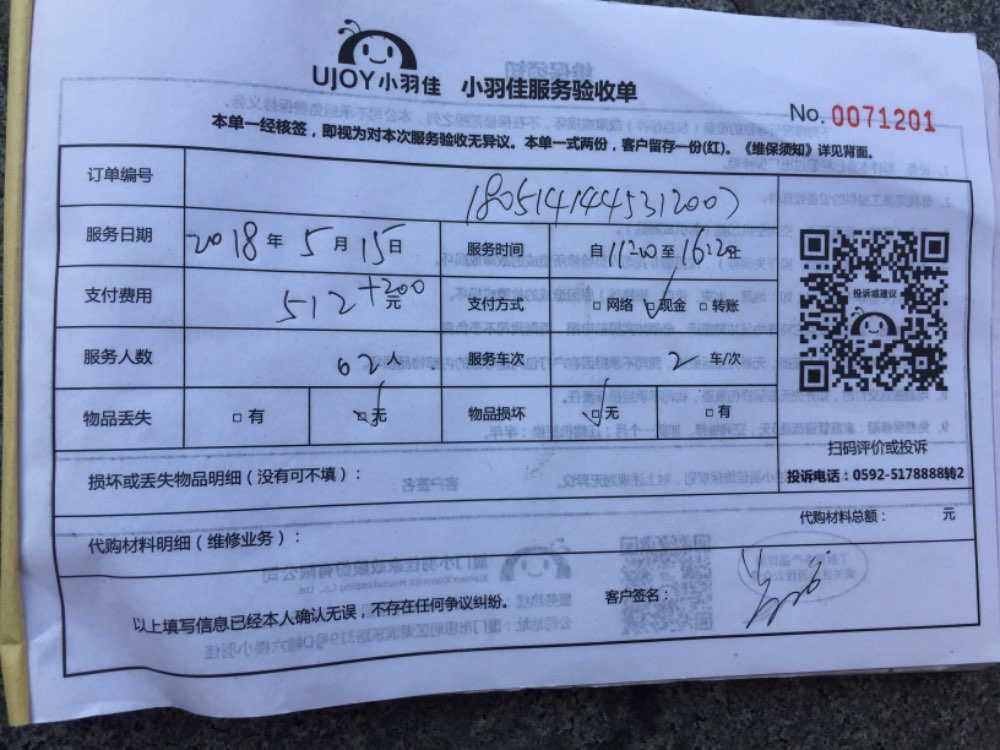 UJOY小羽佳 小羽佳服务验收单
No. 0071201
本单一经核签，即视为对本次服务验收无异议。本单一式两份，客户留存一份(红)。《维保须知》详见背面。
订单编号 1805141445312007
服务日期 2018年5月15日 服务时间 自11200至1612止
支付费用 512+200元 支付方式 □网络 ☑现金 □转账
服务人数 02人 服务车次 2 车/次
物品丢失 □有 ☑无 物品损坏 ☑无 □有
投诉或建议
扫码评价或投诉
投诉电话：0592-5178888转2
损坏或丢失物品明细（没有可不填）：
代购材料总额： 元
代购材料明细（维修业务）：
以上填写信息已经本人确认无误，不存在任何争议纠纷。 客户签名：